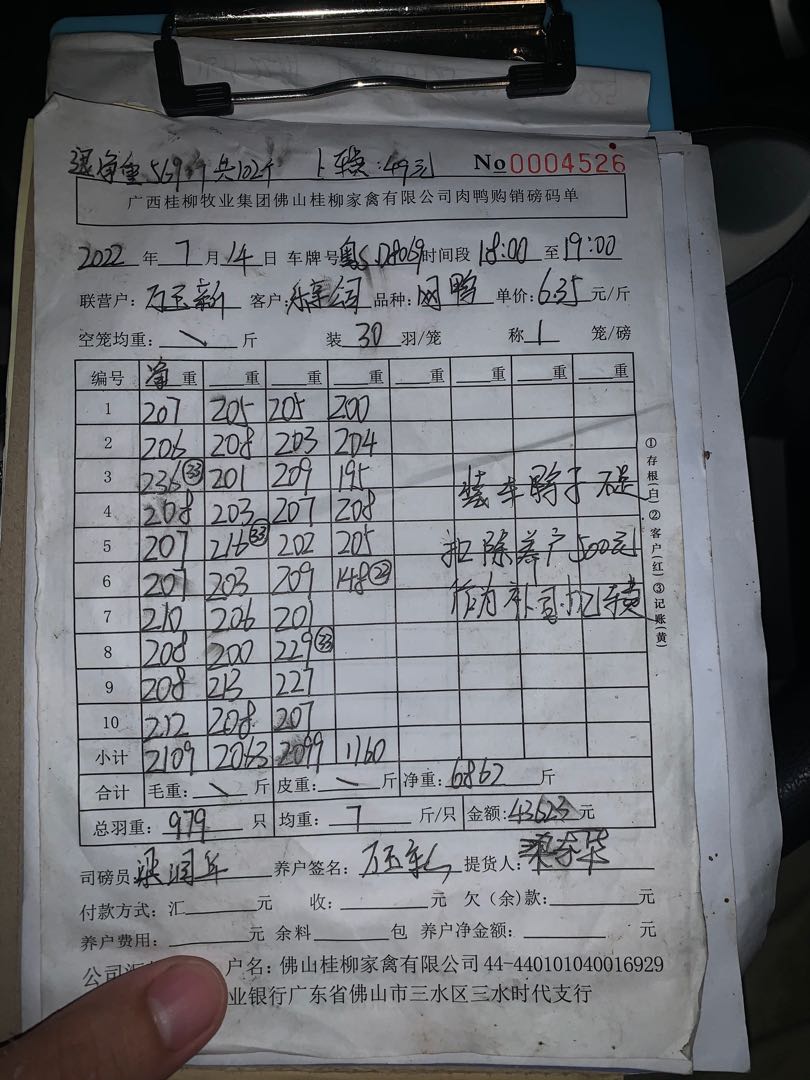 退 569 共102斤 49元 No 0004526
广西桂柳牧业集团佛山桂柳家禽有限公司肉鸭购销磅码单
2022 年 7 月 14 日 车牌号 D8069 时间段 18:00 至 19:00
联营户: 客户: 品种: 鸭 单价: 6.35 元/斤
空笼均重: \ 斤 装 30 羽/笼 称 1 笼/磅
编号 净重 重 重 重 重 重 重 重
1 207 205 205 200
2 206 208 203 204
3 236 33 201 209 195
4 208 203 207 208
5 207 216 33 202 205
6 207 203 209 148 22
7 210 206 201
8 208 200 229 33
9 208 213 227
10 212 208 207
小计 2109 2063 2099 1160
装车 子不足
扣除养户500元
作为补
合计 毛重: \ 斤 皮重: \ 斤 净重: 6862 斤
总羽重: 979 只 均重: 7 斤/只 金额: 43623 元
司磅员: 梁润年 养户签名: 提货人:
付款方式: 汇 元 收: 元 欠(余)款: 元
养户费用: 元 余料 包 养户净金额: 元
公司 户名: 佛山桂柳家禽有限公司 44-440101040016929
业银行广东省佛山市三水区三水时代支行
①存根(白)②客户(红)③记账(黄)